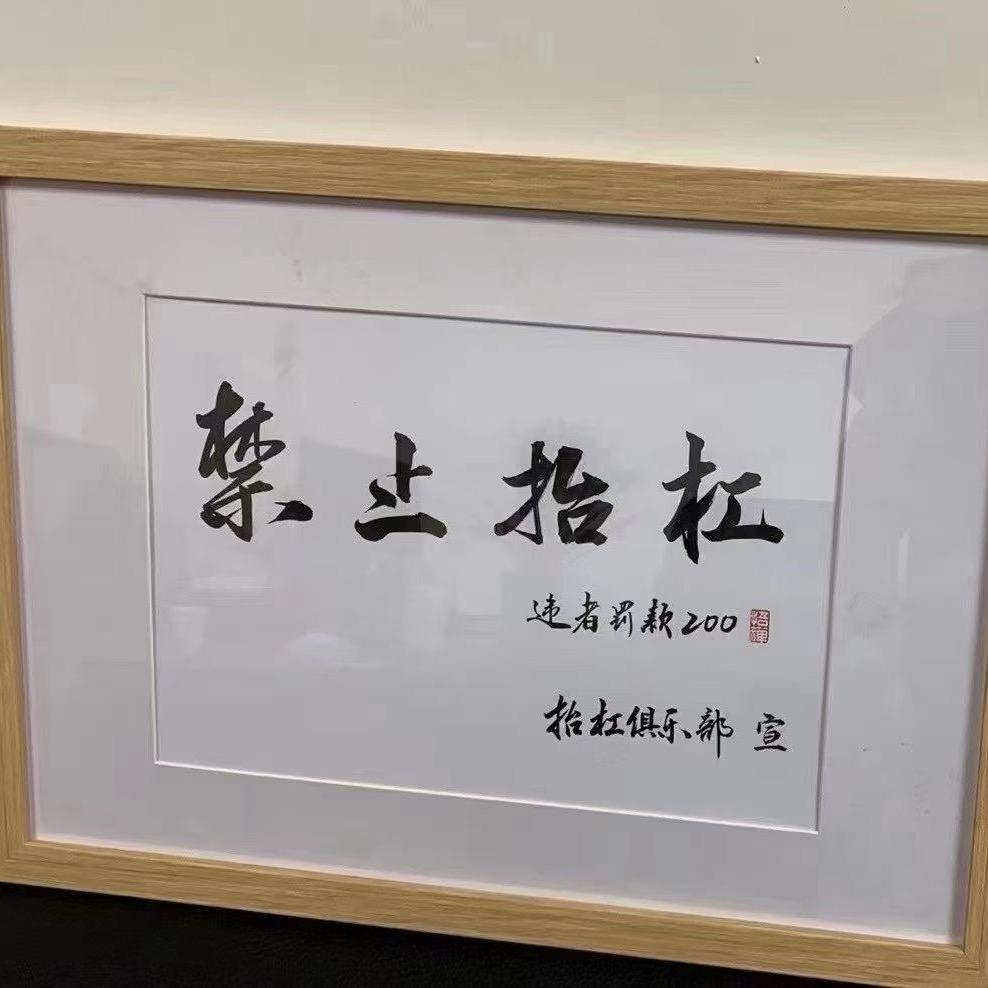 禁止抬杠
违者罚款200
抬杠俱乐部 宣